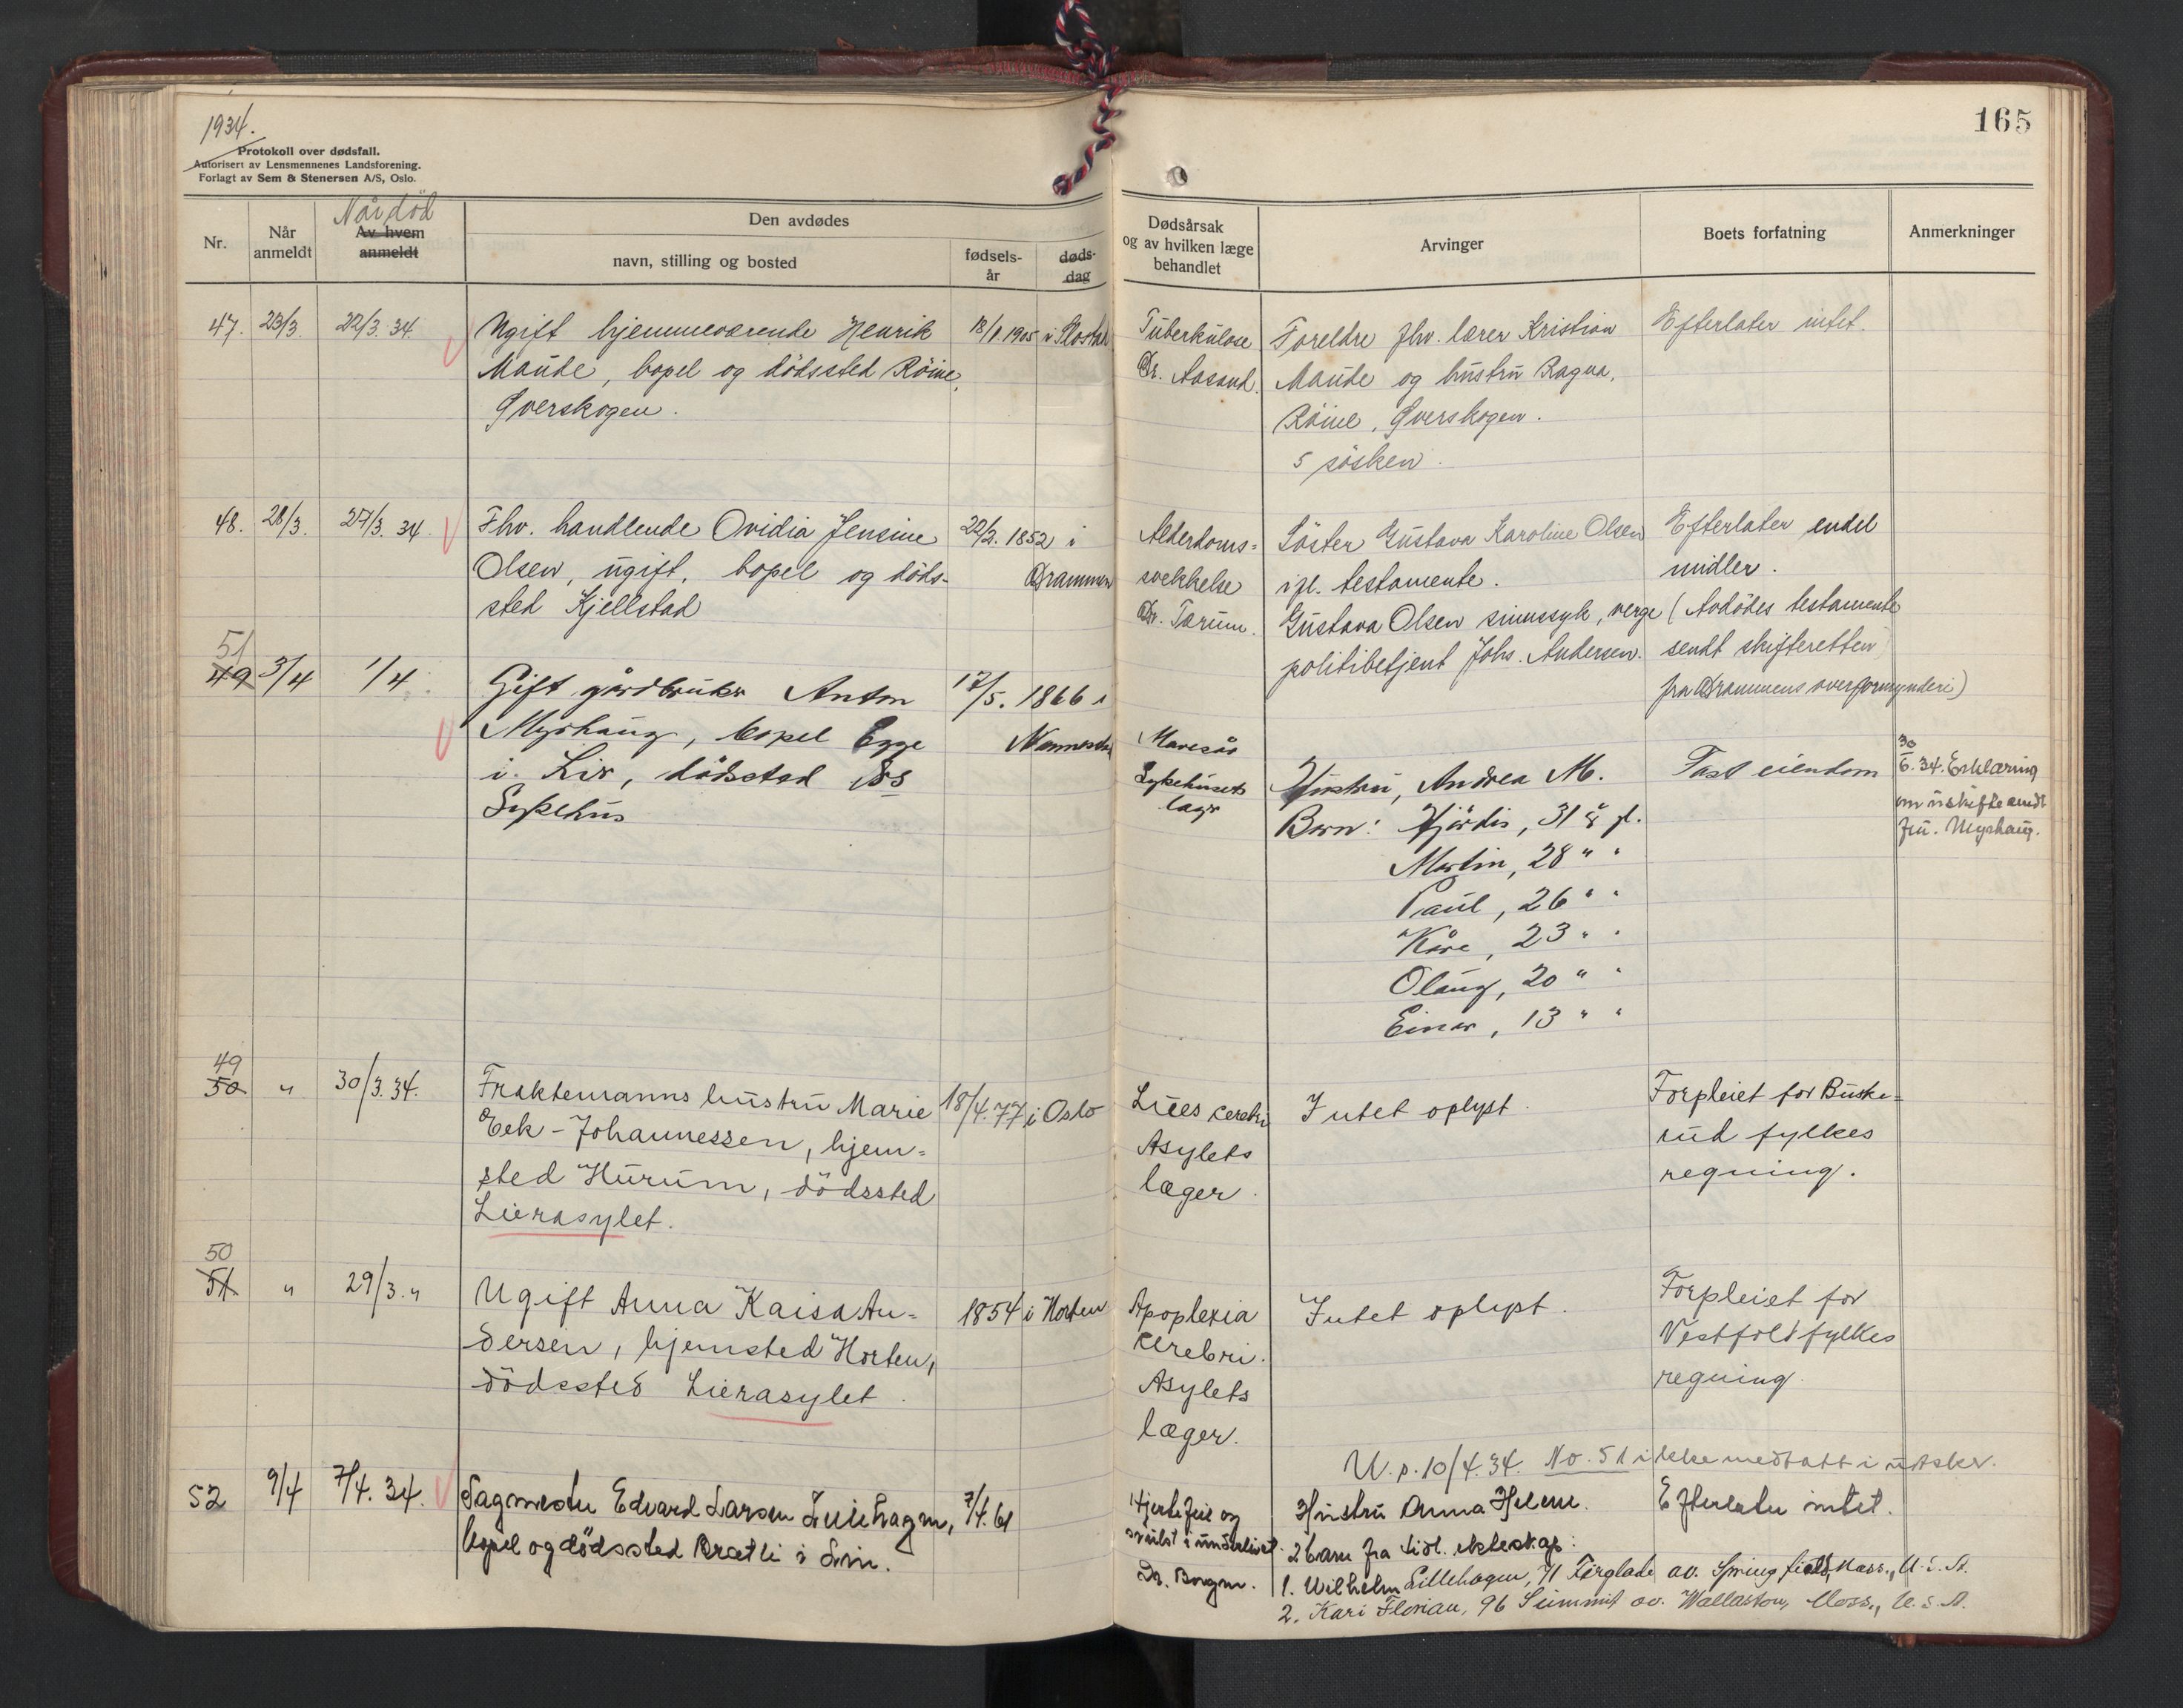 1934.
Protokoll over dødsfall.
Autorisert av Lensmennenes Landsforening.
Forlagt av Sem & Stenersen A/S, Oslo.
165
Nr.
Når anmeldt
Når död
Av hvem anmeldt
Den avdødes
navn, stilling og bosted
fødsels-år
døds-dag
Dødsårsak og av hvilken læge behandlet
Arvinger
Boets forfatning
Anmerkninger
47. 23/3. 22/3. 34. Ugift hjemmeværende Henrik 18/1. 1905 i
Maude, bopel og dödssted Röine,
Gverskogen.
Tuberkulose
Dr. Aasand.
Foreldre fhv. lærer Kristian
Maude og hustru Ragna,
Röine, Gverskogen.
5 sösken.
Efterlater intet.
48. 28/3. 27/3. 34. Fhv. handlende Ovidia Jensine 22/2. 1852 i
Olsen, ugift, bopel og döds- Drammen
sted Kjellstad
Alderdoms=
svekkelse
Dr. Tarum.
Söster Gustava Karoline Olsen
ifl. testamente.
Gustava Olsen sinnssyk, verge
politibetjent Johs. Andersen.
Efterlater endel
midler.
(Avdödes testamente
sendt skifteretten
fra Drammens overformynderi)
51
49 3/4 1/4 Gift gårdbruker Anton 17/5. 1866 i
Myrhaug, bopel Egge
i Lier, dödssted
Sykehus
Sykehusets
læge
Hustru, Andrea M.
Barn: Hjördis, 31 år gl.
Martin, 28 " "
Paul, 26 " "
Kåre, 23 " "
Olaug, 20 " "
Einar, 13 " "
Fast eiendom
30/6. 34. Erklæring
om uskifte sendt
fru Myrhaug.
49
50 " 30/3. 34. Fraktemanns hustru Marie 18/4. 77 i Oslo
Eek-Johannessen, hjem=
sted Hurum, dödssted
Lierasylet.
Lues cerebri
Asylets
læger.
Intet oplyst.
Forpleiet for Buske=
rud fylkes
regning.
50
51 " 29/3. " Ugift Anna Kaisa An=  1854 i Horten
dersen, hjemsted Horten,
dödssted Lierasylet.
Apoplexia
cerebri.
Asylets
læger.
Intet oplyst.
Forpleiet for
Vestfold fylkes
regning.
U. p. 10/4. 34. No. 51 ikke medtatt i utskr.
52 9/4 7/4. 34. Sagmester Edvard Larsen Lillehagen, 7/4. 61
bopel og dödssted Bratli i Lier.
Hjertefeil og
svulst i underlivet.
Dr. Borgen.
Hustru Anna Helene.
2 barn fra tidl. ekteskap:
1. Wilhelm Lillehagen, 71 Ferglade av. Springfield, Mass., U.S.A.
2. Kari Florian, 96 Summit av. Wallaston, Mass., U.S.A.
Efterlater intet.